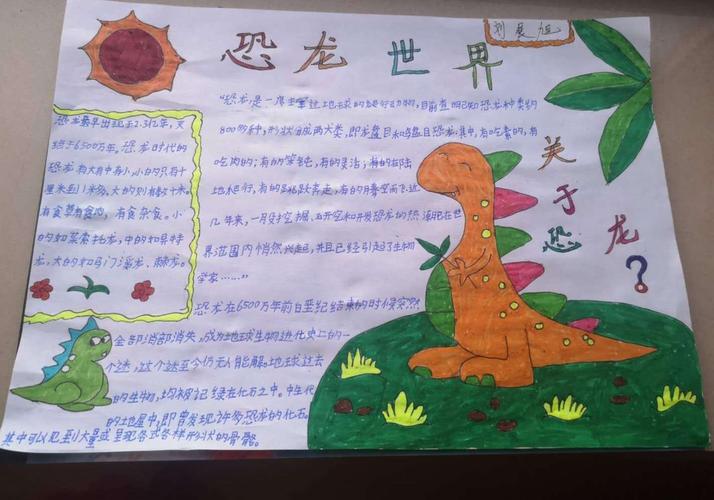 恐龙世界
关于恐龙?
恐龙最早出现于2.3亿年,灭
绝于6500万年。恐龙时代的
恐龙有大有中有小,小的只有十
厘米至1米多,大的则有数十米。
有食草有食肉,有食杂食。小
的如莱索托龙,中的如异特
龙,大的如马门溪龙、棘龙。
"恐龙是一席主宰过地球的史前动物,目前查明的恐龙种类约
800多种,形状分成两大类,即龙盘目和鸟盘目恐龙其中,有吃素的,有
吃肉的;有的笨钝,有的灵活;有的在陆
地爬行,有的跳跃奔走,有的腾空而飞近
几年来,一股挖掘、研究和开发恐龙的热潮已在世
界范围内悄然兴起,并且已经引起了生物
学家……"
恐龙在6500万年前白垩纪结束的时候突然
全部消部消失,成为地球生物进化史上的一
个迷,这个迷至今仍无人能解。地球过去
的生物,均被记绿在化石之中。中生代
的地层中,即曾发现许多恐龙的化石。
其中可以见到大量或呈现各式各样形状的骨骼。